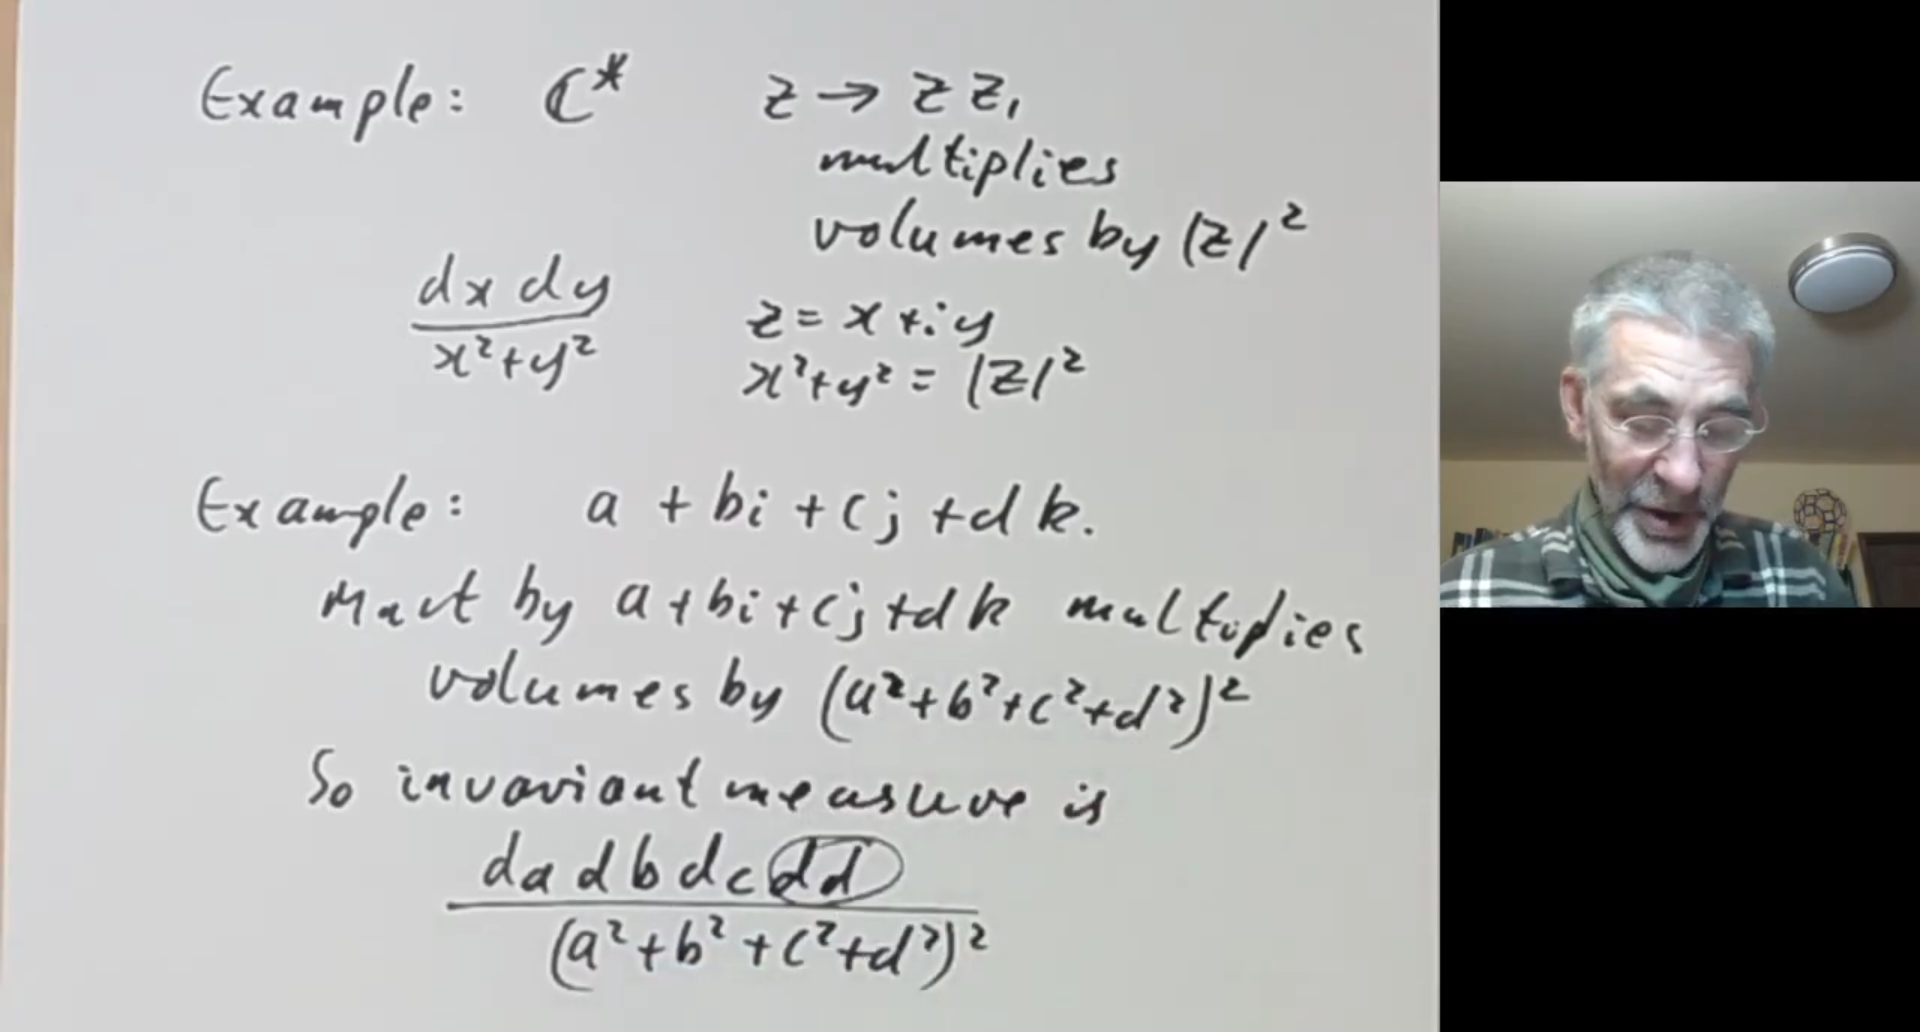 Example: ℂ* z → z z₁
multiplies
volumes by |z|²
dx dy
x²+y²
z = x+iy
x²+y² = |z|²
Example: a + bi + cj + dk.
Mult by a+bi+cj+dk multiplies
volumes by (a²+b²+c²+d²)²
So invariant measure is
da db dc dd
(a²+b²+c²+d²)²